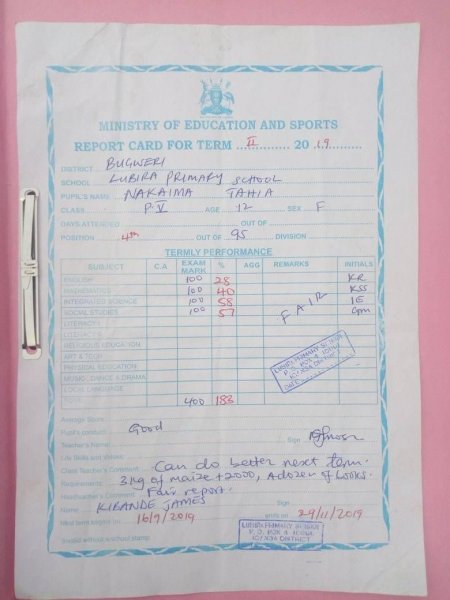 MINISTRY OF EDUCATION AND SPORTS
REPORT CARD FOR TERM II 20 19
DISTRICT BUGWERI
SCHOOL LUBIRA PRIMARY SCHOOL
PUPIL'S NAME NAKAIMA TAHIA
CLASS P.V AGE 12 SEX F
DAYS ATTENDED OUT OF
POSITION 4th OUT OF 95 DIVISION
TERMLY PERFORMANCE
SUBJECT C.A EXAM MARK % AGG REMARKS INITIALS
ENGLISH 100 28 KR
MATHEMATICS 100 40 KSS
INTEGRATED SCIENCE 100 58 IE
SOCIAL STUDIES 100 57 Opm
FAIR
LITERACY I
LITERACY II
RELIGIOUS EDUCATION
ART & TECH
PHYSICAL EDUCATION
MUSIC, DANCE & DRAMA
LOCAL LANGUAGE
TOTAL 400 183
LUBIRA PRIMARY SCHOOL
DATE
Average Score
Pupil's conduct Good
Teacher's Name Sign
Life Skills and Values
Class Teacher's Comment Can do better next term.
Requirements 3kg of maize +2000, A dozen of books.
Headteacher's Comment Fair report.
Name KIBANDE JAMES Sign
Next term begins on 16/9/2019 ends on 29/11/2019
Invalid without a school stamp
LUBIRA PRIMARY SCHOOL